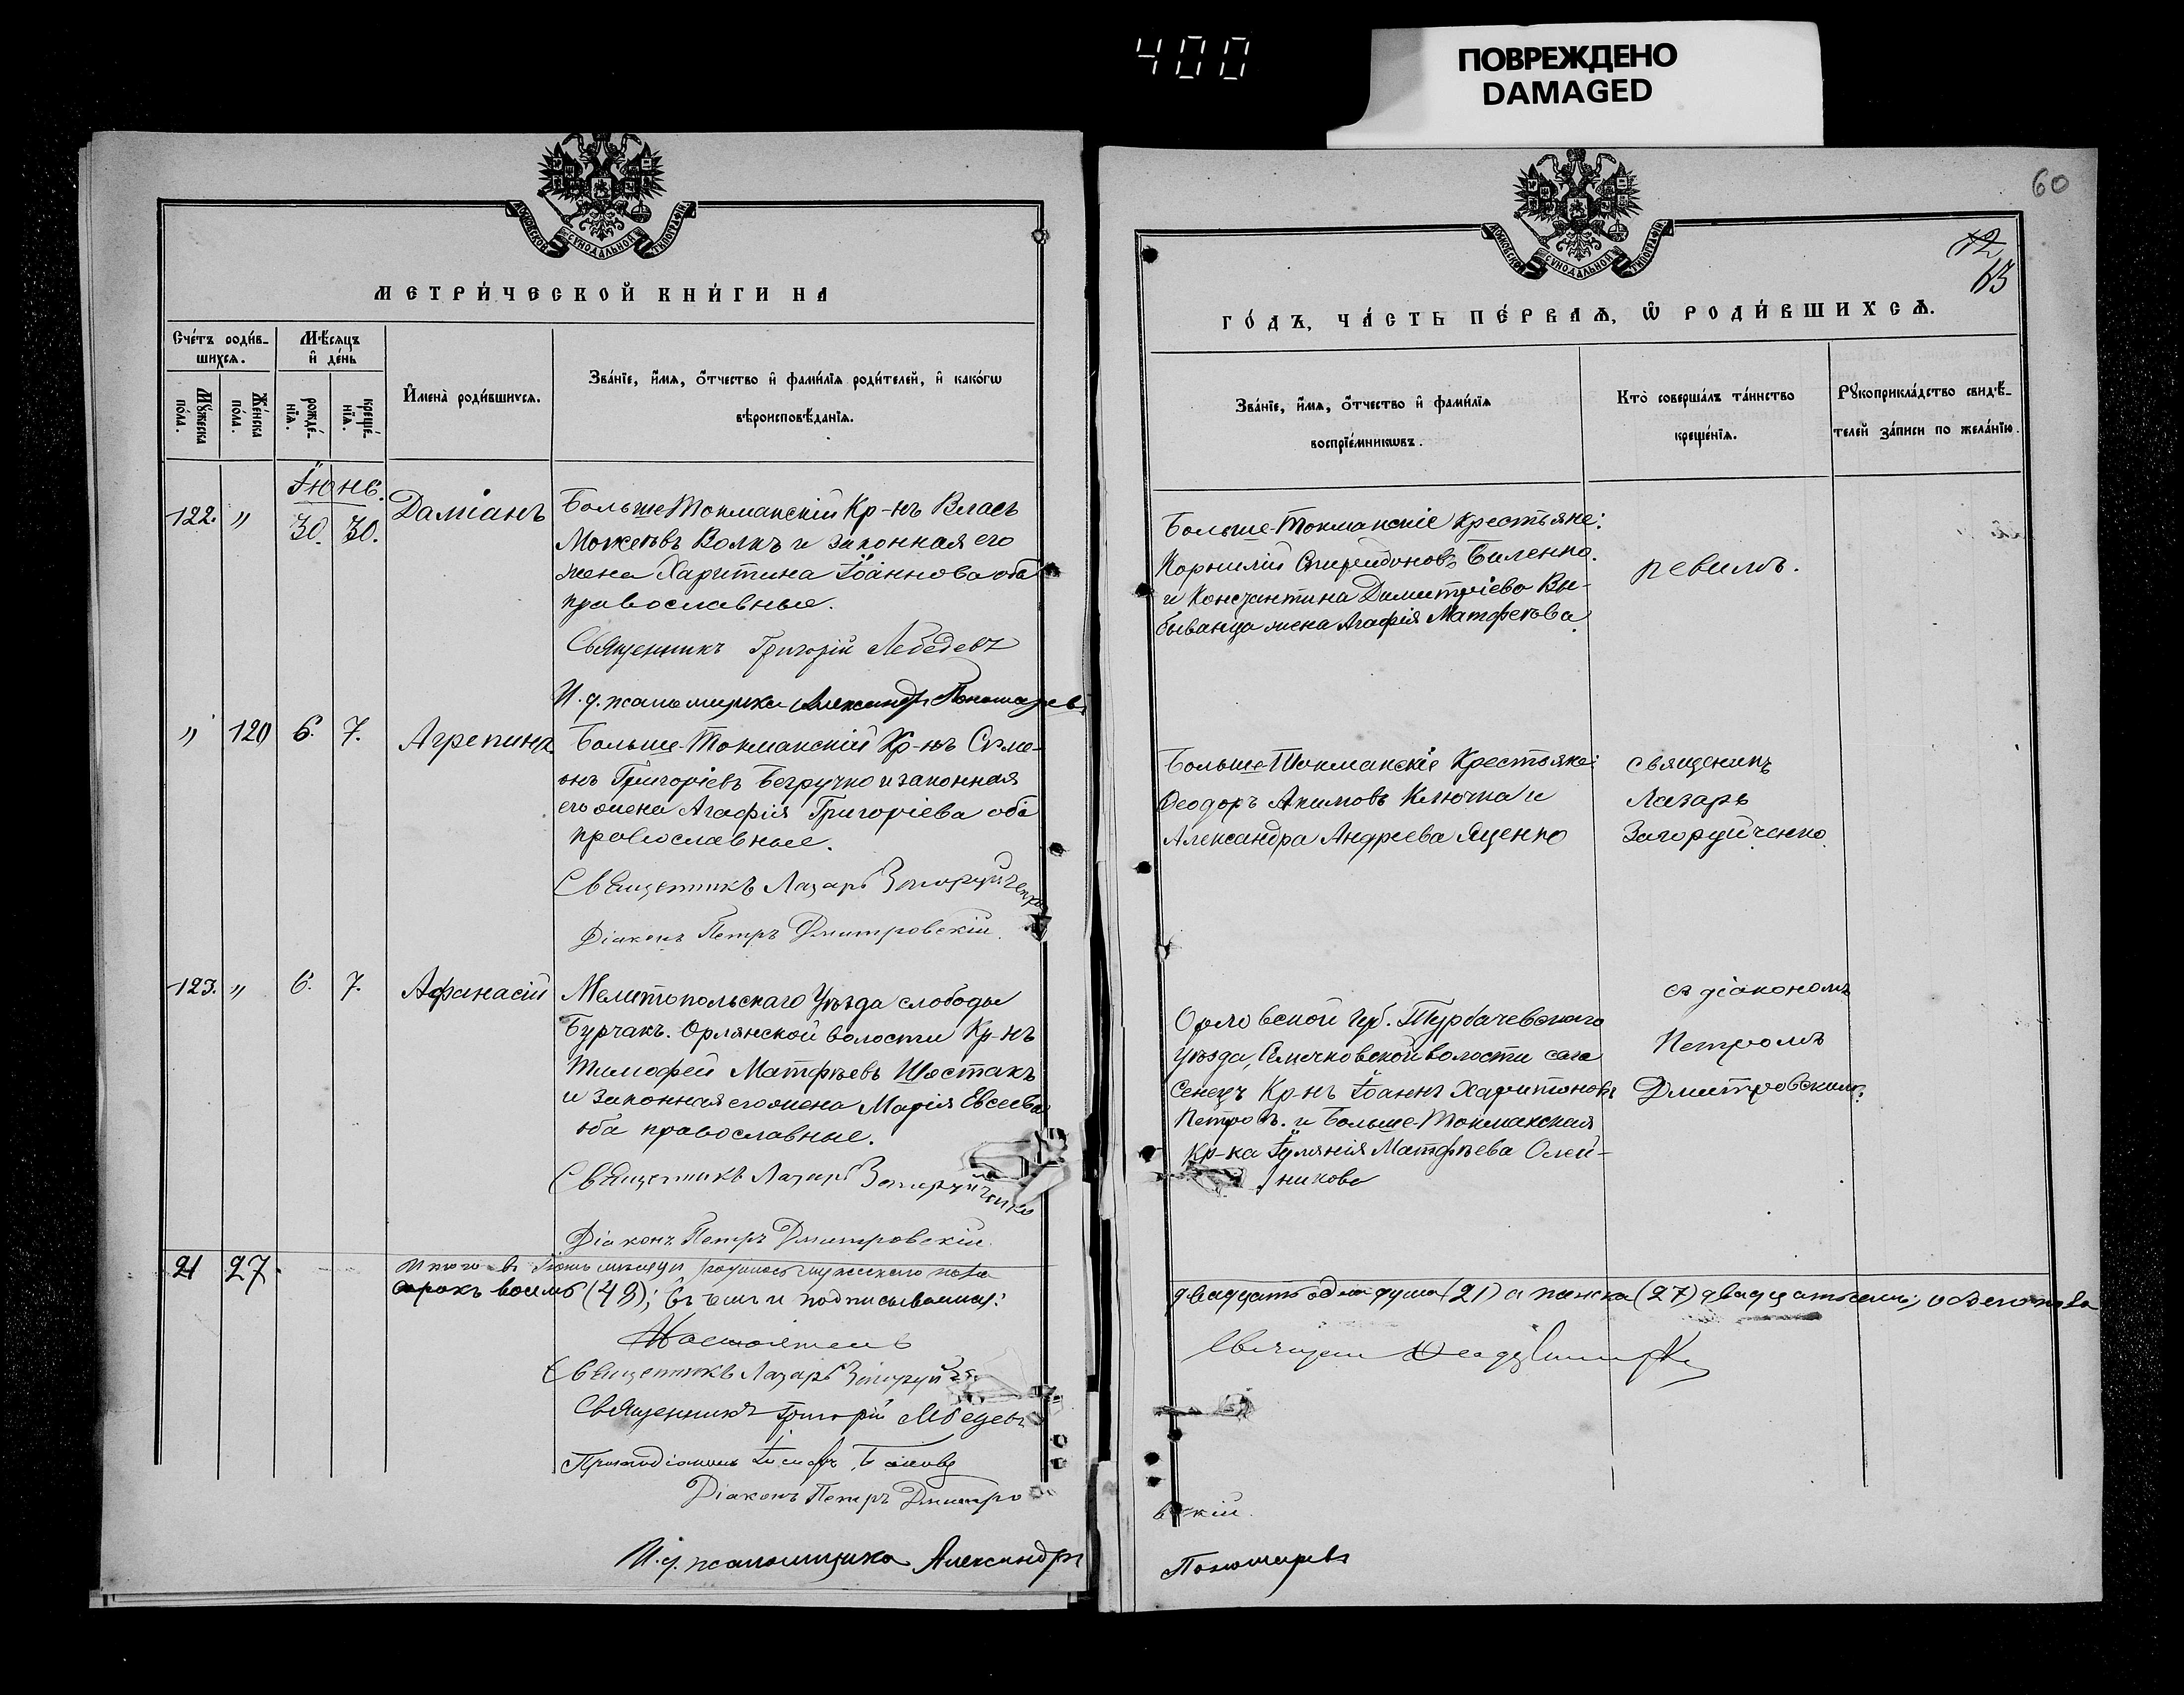 400
ПОВРЕЖДЕНО
DAMAGED
МОСКОВСКОЙ СѴНОДАЛЬНОЙ ТИПОГРАФІИ
МЕТРИ́ЧЕСКОЙ КНИ́ГИ НА
Сче́тъ роди́в-
шихсѧ.
Мѣ́сѧцъ
и҆ де́нь
Мꙋ́жеска
по́ла.
Же́нска
по́ла.
рожде́-
нїѧ.
креще́-
нїѧ.
И҆мена̀ роди́вшихсѧ.
Зва́нїе, и҆́мѧ, ѻ҆́тчество и҆ фами́лїѧ роди́телей, и҆ како́гѡ
вѣроисповѣ́данїѧ.
Іюнь.
122. " 30. 30. Даміанъ
Больше Токмакскій Кр-нъ Власъ
Волкъ и законная его
жена Харитина Іоаннова оба
православные.
Священникъ Григорій Лебедевъ
И. д. псаломщика Александръ Пономаревъ
" 120 6. 7. Агрепина.
Больше-Токмакскій Кр-нъ Симе-
онъ Григоріевъ Безручко и законная
его жена Агафія Григоріева оба
православные.
Священникъ Лазарь Загоруйченко
Діаконъ Петръ Дмитровскій.
123. " 6. 7. Афанасій
Мелитопольскаго Уѣзда слободы
Бурчакъ. Орлянской волости Кр-нъ
Тимофей Матфѣевъ Шостакъ
и Законная его жена Марія Евсеева
оба православные.
Священникъ Лазарь Загоруйченко
Діаконъ Петръ Дмитровскій.
21 27.
Итого въ Іюнѣ мѣсяцѣ родилось мужескаго пола
сорокъ восмь (48); въ чемъ и подписываемся:
Настоятель
Священникъ Лазарь Загоруйче
Священникъ Григорій Лебедевъ
Протодіаконъ Іосифъ
Діаконъ Петръ Дмитро
И. д. псаломщика Александръ
60
12
63
МОСКОВСКОЙ СѴНОДАЛЬНОЙ ТИПОГРАФІИ
ГО́ДЪ, ЧА́СТЬ ПЕ́РВАѦ, Ѡ҆ РОДИ́ВШИХСѦ.
Зва́нїе, и҆́мѧ, ѻ҆́тчество и҆ фами́лїѧ
воспрїе́мникѡвъ.
Кто̀ соверша́лъ та́инство
креще́нїѧ.
Рꙋкоприкла́дство свидѣ́-
телей за́писи по жела́нїю.
Больше-Токмакскіе крестьяне:
Корнилій Спиридоновъ Биленко.
и Константина Димитріева Вы-
быванца жена Агафія Матфеева
Больше Токмакскіе Крестьяне:
Феодоръ Акимовъ Ключка и
Александра Андреева Яценко
священикъ
Лазарь
Загоруйченко.
съ діакономъ
Петромъ
Дмитровскимъ.
Орловской Губ. Трубачевскаго
уѣзда, волости села
Сенецъ Кр-нъ Іоаннъ Харитоновъ
Петровъ. и Больше-Токмакская
Кр-ка Іуліянія Матфѣева Олей-
никова
двадцать одна душа (21) а женска (27) двадцать семь; обоего пола
вскій.
Пономаревъ